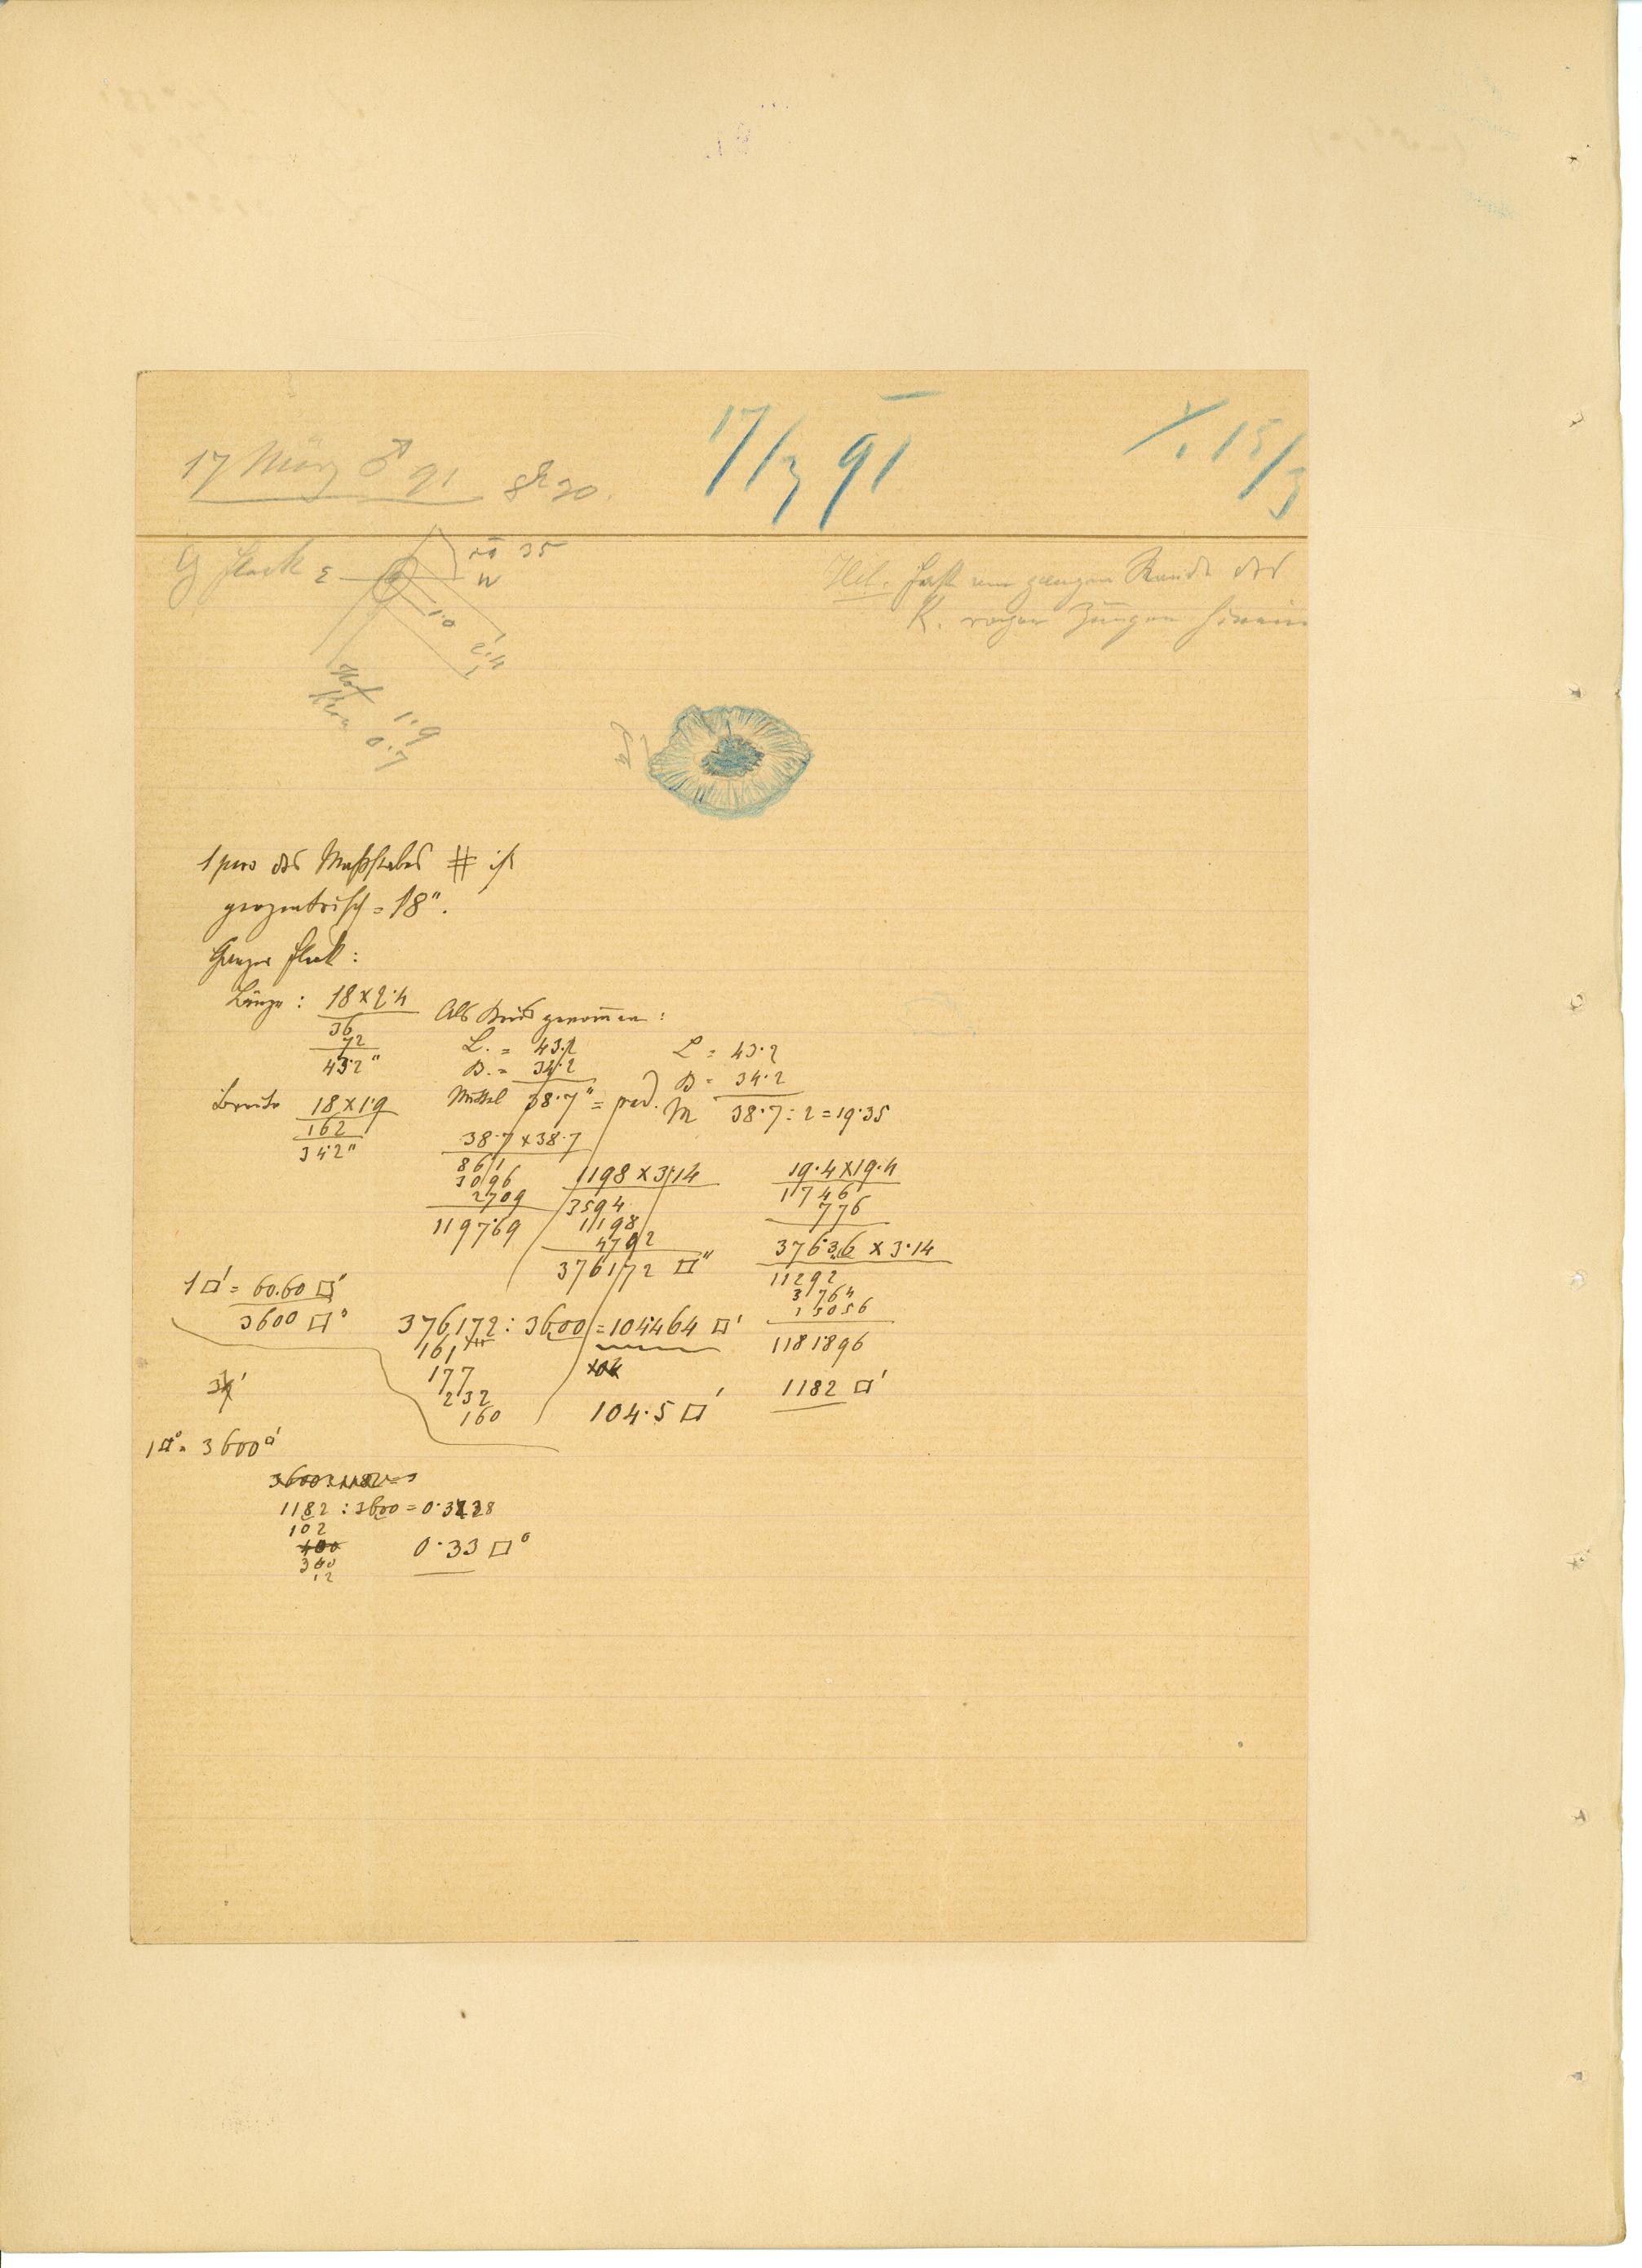 17/3 91
V. 15/3
17 März ♂ 91 8h 30.
G Fleck E W 35
1.0
2.4
Hof 1.9
Kern 0.7
Hel. Fast vom ganzen Rande des
K. ragen Zungen hinein
des Maßstabes # ist
geozentrisch = 18".
Ganzer Fleck:
Länge: 18 x 2.4
36
72
43.2"
Breite 18 x 1.9
162
34.2"
Als Kreis genommen:
L. = 43.2
B. = 34.2
Mittel 38.7" =
38.7 x 38.7
8611
3096
2709
1197.69
1198 x 3.14
3594
1198
4792
3761.72 □"
L = 43.2
B = 34.2
M 38.7 : 2 = 19.35
19.4 x 19.4
1746
776
376.36 x 3.14
11292
3764
15056
1181.896
1182 □'
1 □' = 60.60 □'
3600 □°
376172 : 3600 = 104.464 □'
161
177
232
160
104.5 □'
1□° = 3600□'
1182 : 3600 = 0.3328
102
400
340
12
0.33 □°